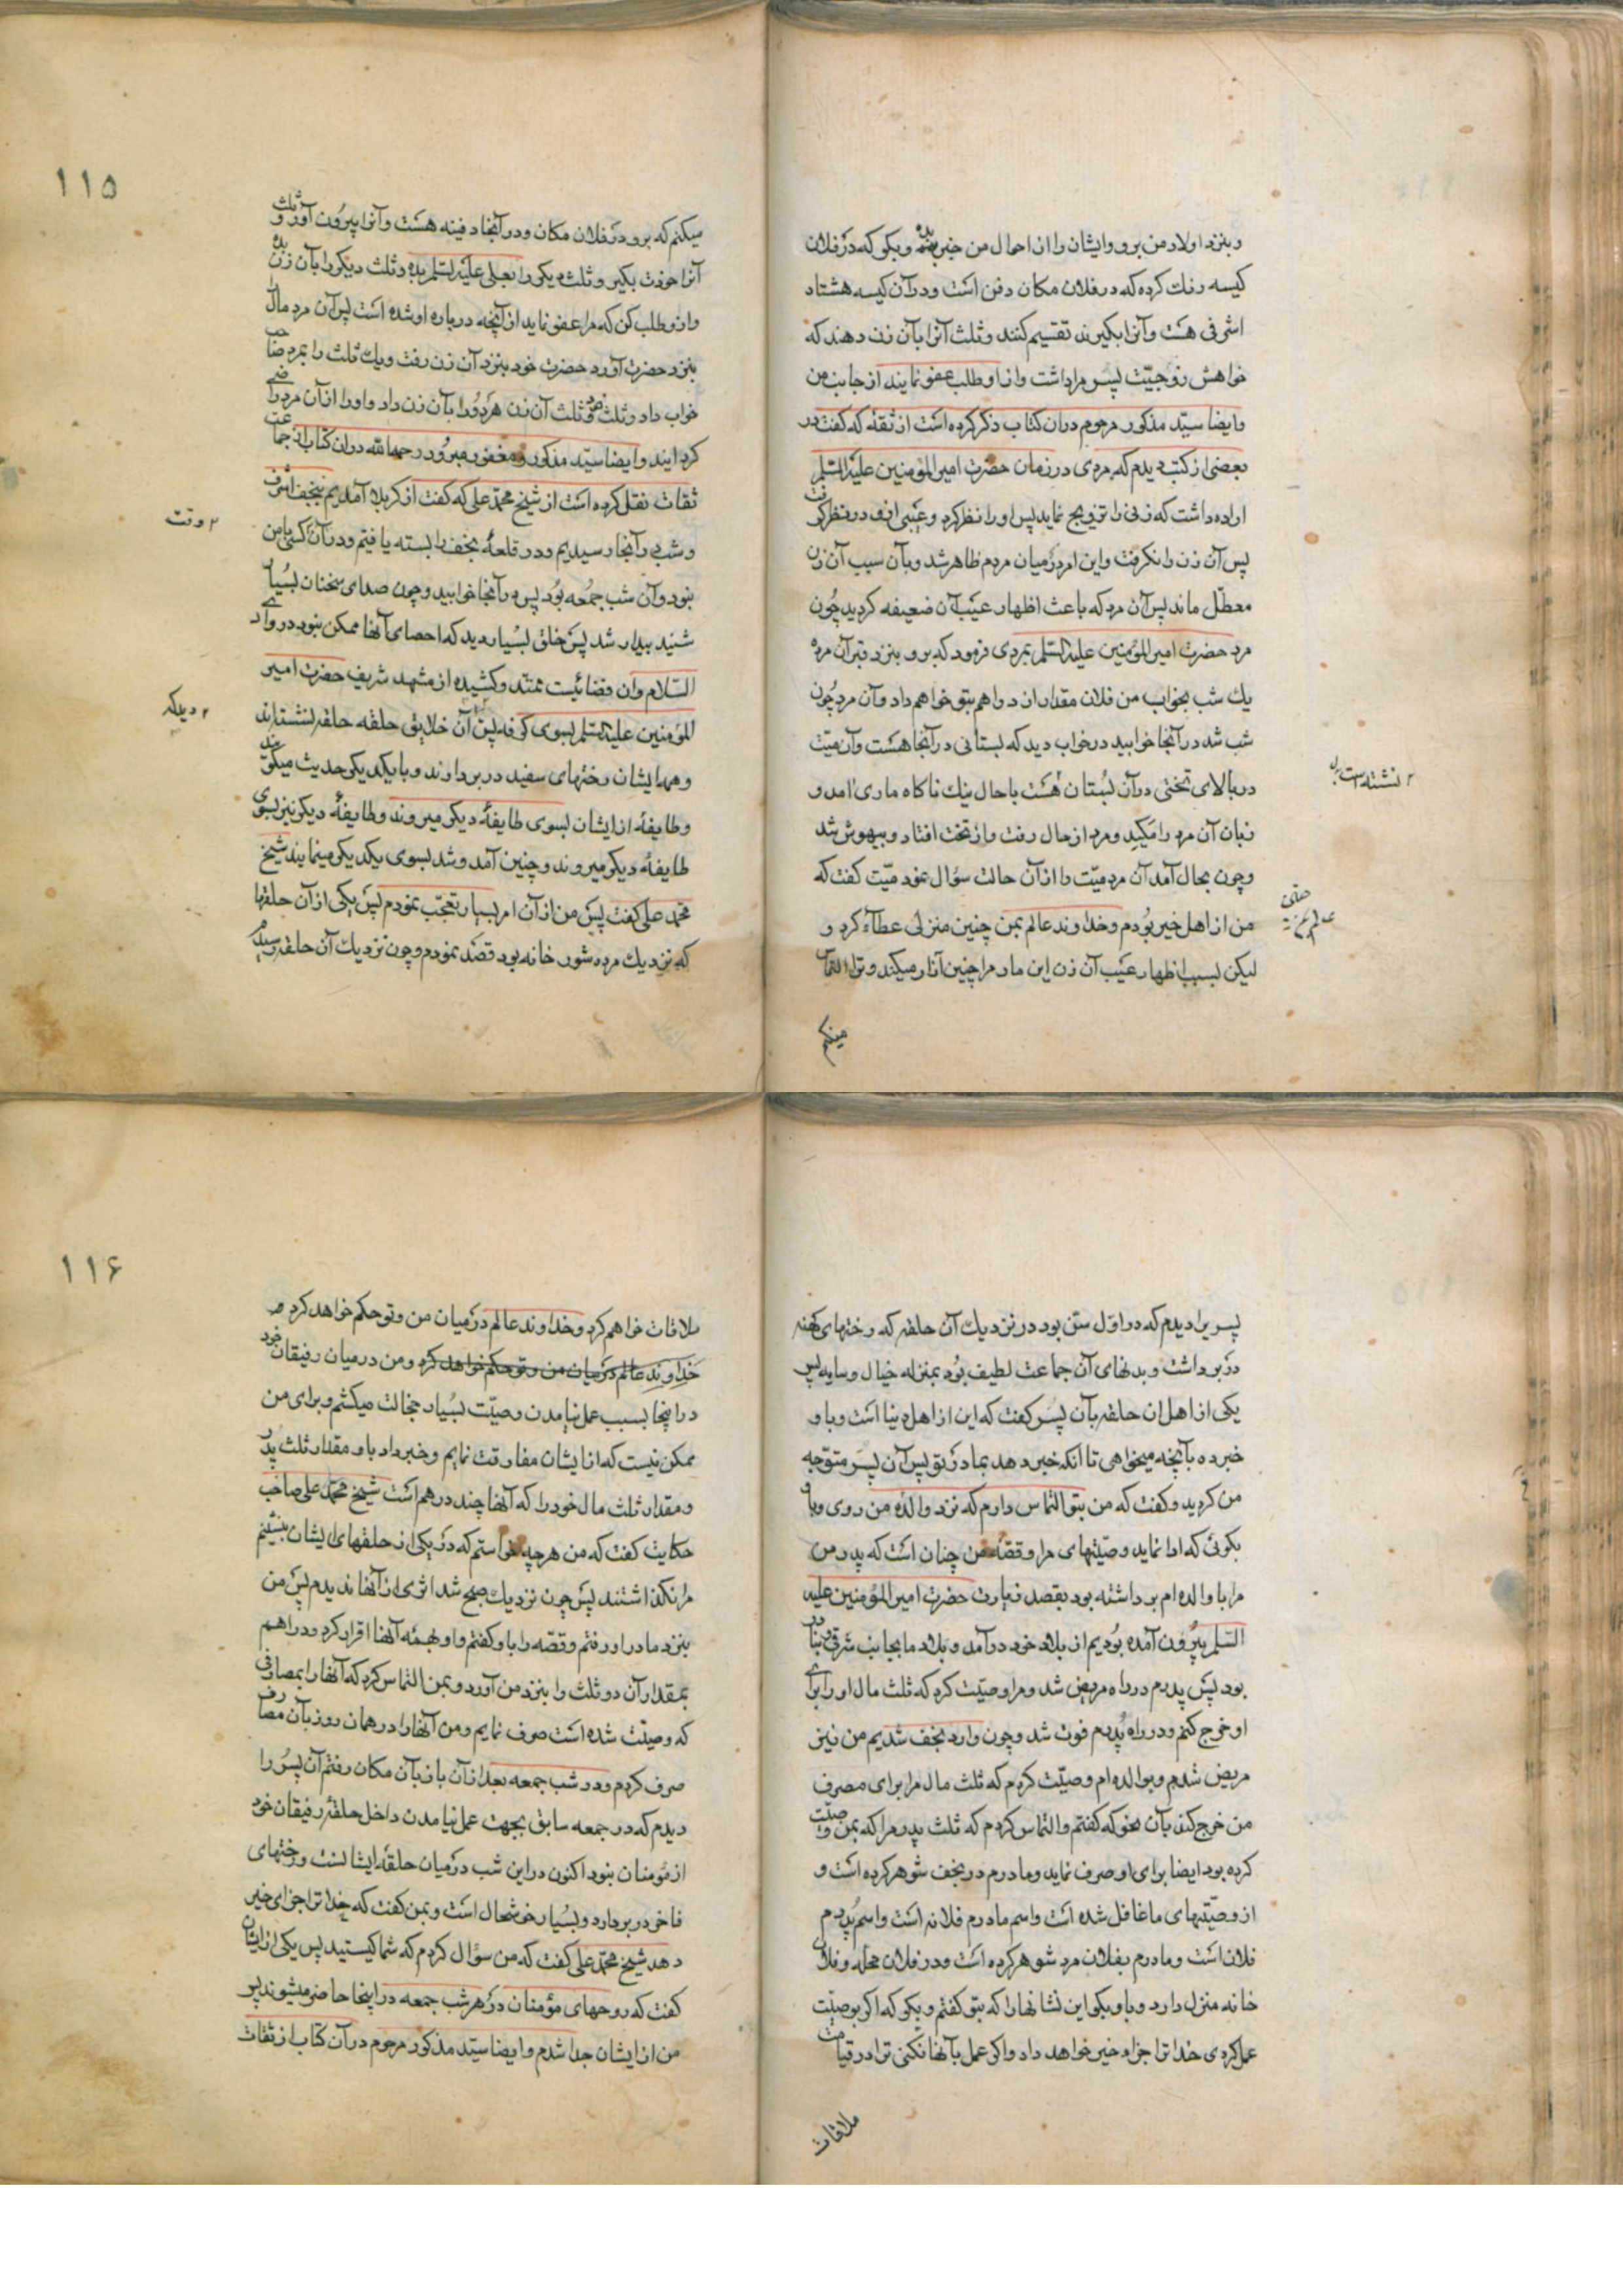 و بنزد اولاد من برو و ایشان را از احوال من خبر بده و بکو که در فلان
کیسه رنك کرده که در فلان مکان دفن است و در آن کیسه هشتاد
اشرفی هست و آنرا بکیرند تقسیم کنند و ثلث آنرا بآن زن دهند که
خواهش زوجیّت پسر مرا داشت و از او طلب عفو نمایند از جانب من
و ایضا سیّد مذکور مرحوم در آن کتاب ذکر کرده است از ثقهٔ که کفت در
بعضی از کتب دیدم که مردی در زمان حضرت امیر المؤمنین علیه السّلم
اراده داشت که زنی را تزویج نماید پس او را نظر کرد و عیبی از او در نظر کرفت
پس آن زن را نکرفت و این امر در میان مردم ظاهر شد و بآن سبب آن زن
معطّل ماند پس آن مرد که باعث اظهار عیب آن ضعیفه کردید چون
مرد حضرت امیر المؤمنین علیه السّلم بمردی فرمود که برو بنزد قبر آن مرد
یك شب بخواب من فلان مقدار از دراهم بتو خواهم داد و آن مرد چون
شب شد در آنجا خوابید در خواب دید که بستانی در آنجا هست و آن میّت
در بالای تختی در آن بستان هست با حال نیك ناکاه ماری آمد و
۲ نشسته است
زبان آن مرد را مکید و مرد از حال رفت و از تخت افتاد و بیهوش شد
و چون بحال آمد آن مرد میّت را از آن حالت سؤال نمود میّت کفت که
من از اهل خیر بودم و خداوند عالم بمن چنین منزلی عطاء کرد و
لیکن بسبب اظهار عیب آن زن این مار مرا چنین آزار میکند و ترا التماس
میکنم
۱۱۵
میکنم که برو در فلان مکان و در آنجا دفینه هست و آنرا بیرون آور و ثلث
آنرا خودت بکیر و ثلث دیکر را بعلی علیه السّلم بده و ثلث دیکر را بآن زن بده
و از او طلب کن که مرا عفو نماید از آنچه در باره او شده است پس آن مرد مال را
بنزد حضرت آورد حضرت خود بنزد آن زن رفت و یك ثلث را بمرد صاحب
خواب داد و ثلث خود و ثلث آن زن هر دو را بآن زن داد و او را از آن مرد راضی
کردانید و ایضا سیّد مذکور و مغفور مبرور رحمه الله در آن کتاب از جماعت
ثقات نقل کرده است از شیخ محمّد علی که کفت از کربلا آمدیم بنجف اشرف
و شب در آنجا رسیدیم و در قلعهٔ نجف را بسته یافتم و در آن کسی با من
۲ وقت
نبود و آن شب جمعه بود پس در آنجا خوابید و چون صدای سخنان بسیار
شنید بیدار شد پس خلق بسیار دید که احصای آنها ممکن نبود در وادی
السّلام و آن فضائیست ممتّد و کشیده از مشهد شریف حضرت امیر
المؤمنین علیه السّلم بسوی کوفه پس آن خلایق حلقه حلقه نشسته‌اند
۲ دیدکه
و همه ایشان رختهای سفید در بر دارند و با یکدیکر حدیث میکویند
و طایفهٔ از ایشان بسوی طایفهٔ دیکر میروند و طایفهٔ دیکر نیز بسوی
طایفهٔ دیکر میروند و چنین آمد و شد بسوی یکدیکر مینمایند شیخ
محمّد علی کفت پس من از آن امر بسیار تعجّب نمودم پس یکی از آن حلقها
که نزدیك مرده شور خانه بود قصد نمودم و چون نزدیك آن حلقه رسیدم
پسریرا دیدم که در اوّل سنّ بود در نزدیك آن حلقه که رختهای کهنه
در بر داشت و بدنهای آن جماعت لطیف بود بمنزله خیال و سایه پس
یکی از اهل آن حلقه بآن پسر کفت که این از اهل دنیا است و باو
خبر ده بآنچه میخواهی تا آنکه خبر دهد بمادر تو پس آن پسر متوجّه
من کردید و کفت که من بتو التماس دارم که نزد والده من روی و باو
بکوئی که ادا نماید وصیّتهای مرا و قصّهٔ من چنان است که پدر من
مرا با والده ام برداشته بود بقصد زیارت حضرت امیر المؤمنین علیه
السّلم بیرون آمده بودیم از بلاد خود در آمد و بلاد ما بجانب شرقی دنیا
بود پس پدرم در راه مریض شد و مرا وصیّت کرد که ثلث مال او را برای
او خرج کنم و در راه پدرم فوت شد و چون وارد نجف شدیم من نیز
مریض شدم و بوالده ام وصیّت کردم که ثلث مال مرا برای مصرف
من خرج کند بآن نحو که کفتم و التماس کردم که ثلث پدر مرا که بمن وصیّت
کرده بود ایضا برای او صرف نماید و مادرم در نجف شوهر کرده است و
از وصیّتهای ما غافل شده است و اسم مادرم فلانه است و اسم پدرم
فلان است و مادرم بفلان مرد شوهر کرده است و در فلان محلّه و فلان
خانه منزل دارد و باو بکو این نشانها را که بتو کفتم و بکو که اکر بوصیّت
عمل کردی خدا ترا جزاء خیر خواهد داد و اکر عمل بآنها نکنی ترا در قیامت
ملاقات
۱۱۶
ملاقات خواهم کرد و خداوند عالم در میان من و تو حکم خواهد کرد
خداوند عالم در میان من و تو حکم خواهد کرد و من در میان رفیقان خود
در اینجا بسبب عمل نیامدن وصیّت بسیار خجالت میکشم و برای من
ممکن نیست که از ایشان مفارقت نمایم و خبر داد باو مقدار ثلث پدر
و مقدار ثلث مال خود را که آنها چند درهم است شیخ محمّد علی صاحب
حکایت کفت که من هر چه خواستم که در یکی از حلقهای ایشان بنشینم
مرا نکذاشتند پس چون نزدیك صبح شد اثری از آنها ندیدم پس من
بنزد مادر او رفتم و قصّه را باو کفتم و او بهمه آنها اقرار کرد و دراهم
بمقدار آن دو ثلث را بنزد من آورد و بمن التماس کرد که آنها را بمصارفی
که وصیّت شده است صرف نمایم و من آنها را در همان روز بآن مصارف
صرف کردم و در شب جمعه بعد از آن باز بآن مکان رفتم آن پسر را
دیدم که در جمعه سابق بجهت عمل نیامدن داخل حلقهٔ رفیقان خود
از مؤمنان نبود اکنون در این شب در میان حلقهٔ ایشانست و رختهای
فاخر در بر دارد و بسیار خوشحال است و بمن کفت که خدا ترا جزای خیر
دهد شیخ محمّد علی کفت که من سؤال کردم که شما کیستید پس یکی از ایشان
کفت که روحهای مؤمنان در هر شب جمعه در اینجا حاضر میشوند پس
من از ایشان جدا شدم و ایضا سیّد مذکور مرحوم در آن کتاب از ثقات